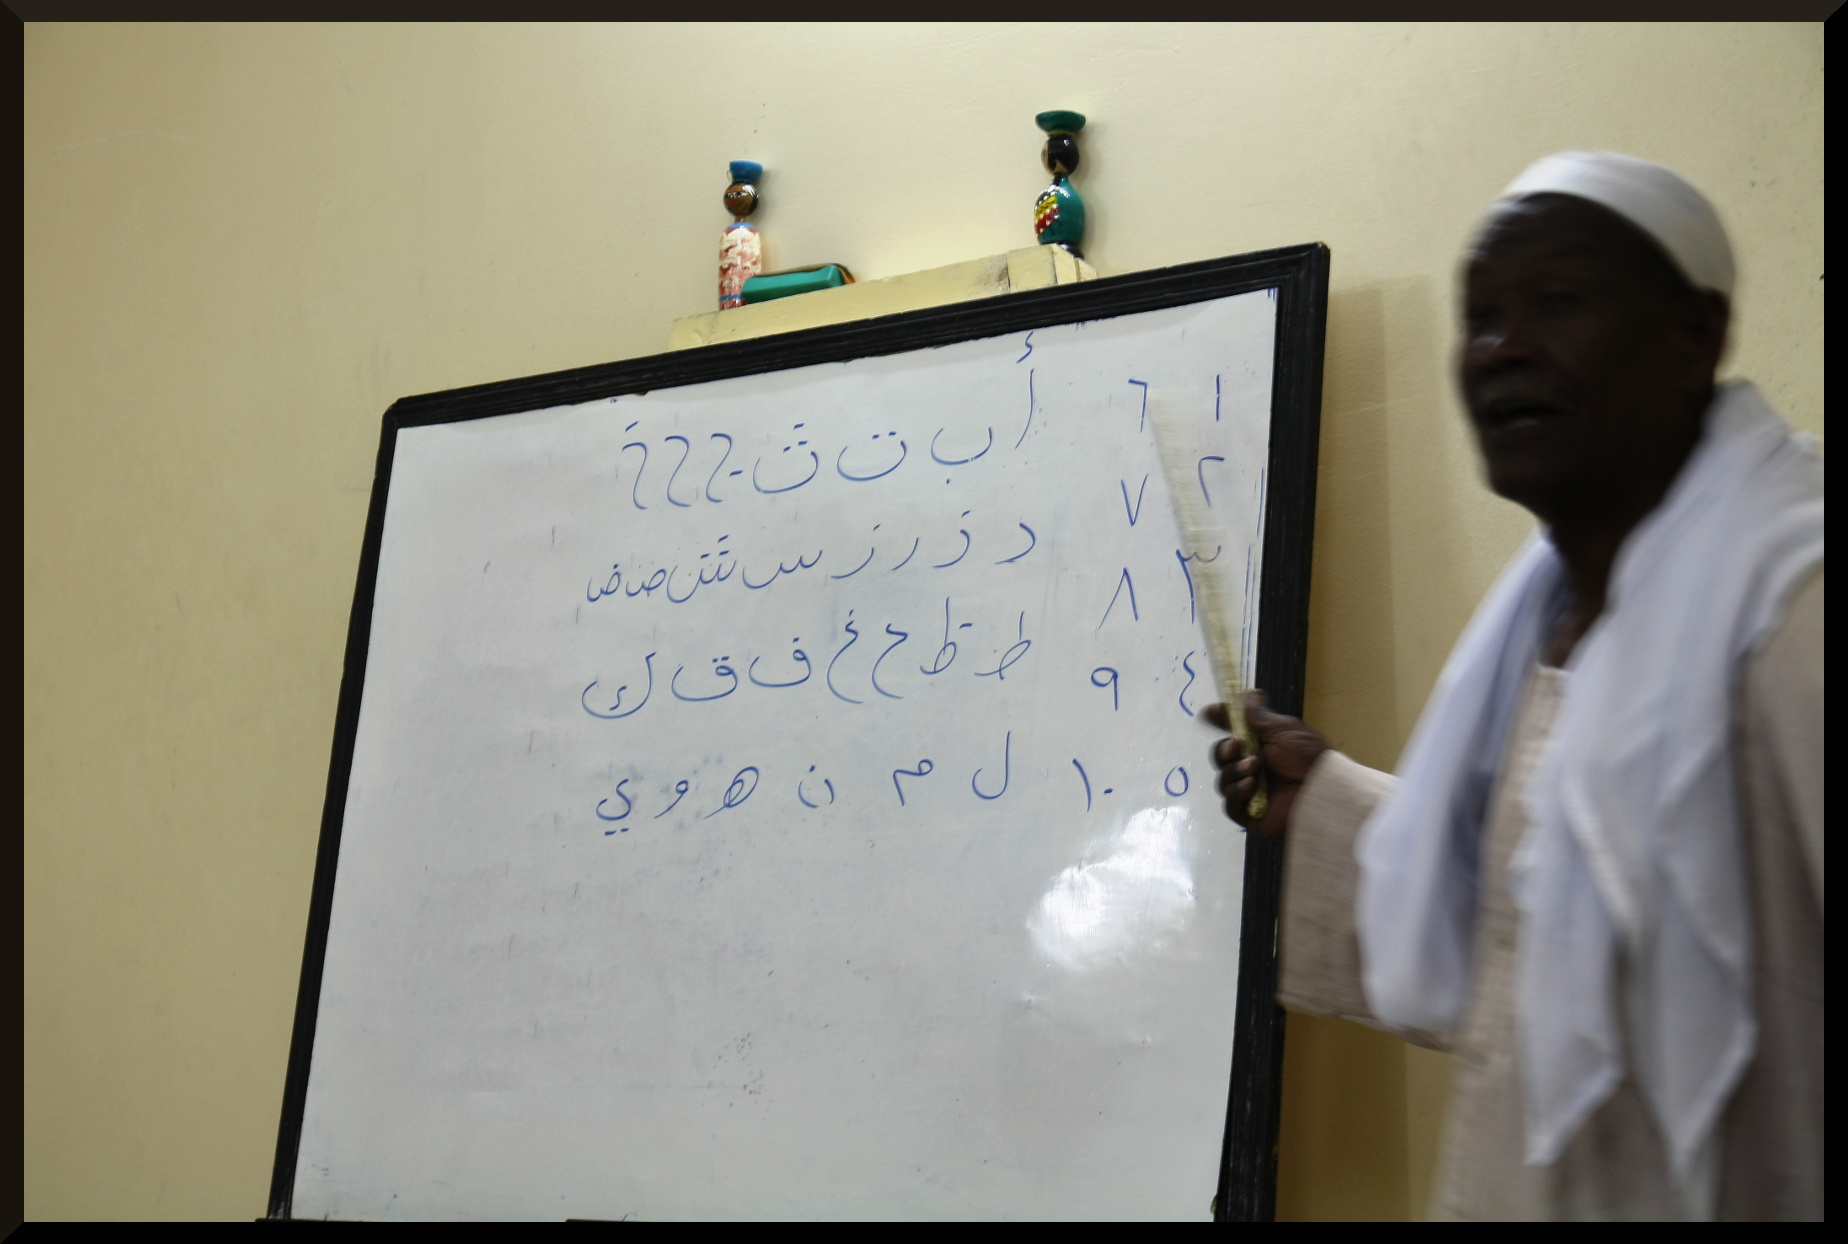 أ ب ت ث ج ح خ
د ذ ر ز س ش ص ض
ط ظ ع غ ف ق ك
ل م ن ه و ي
١ ٦
٢ ٧
٣ ٨
٤ ٩
٥ ١٠